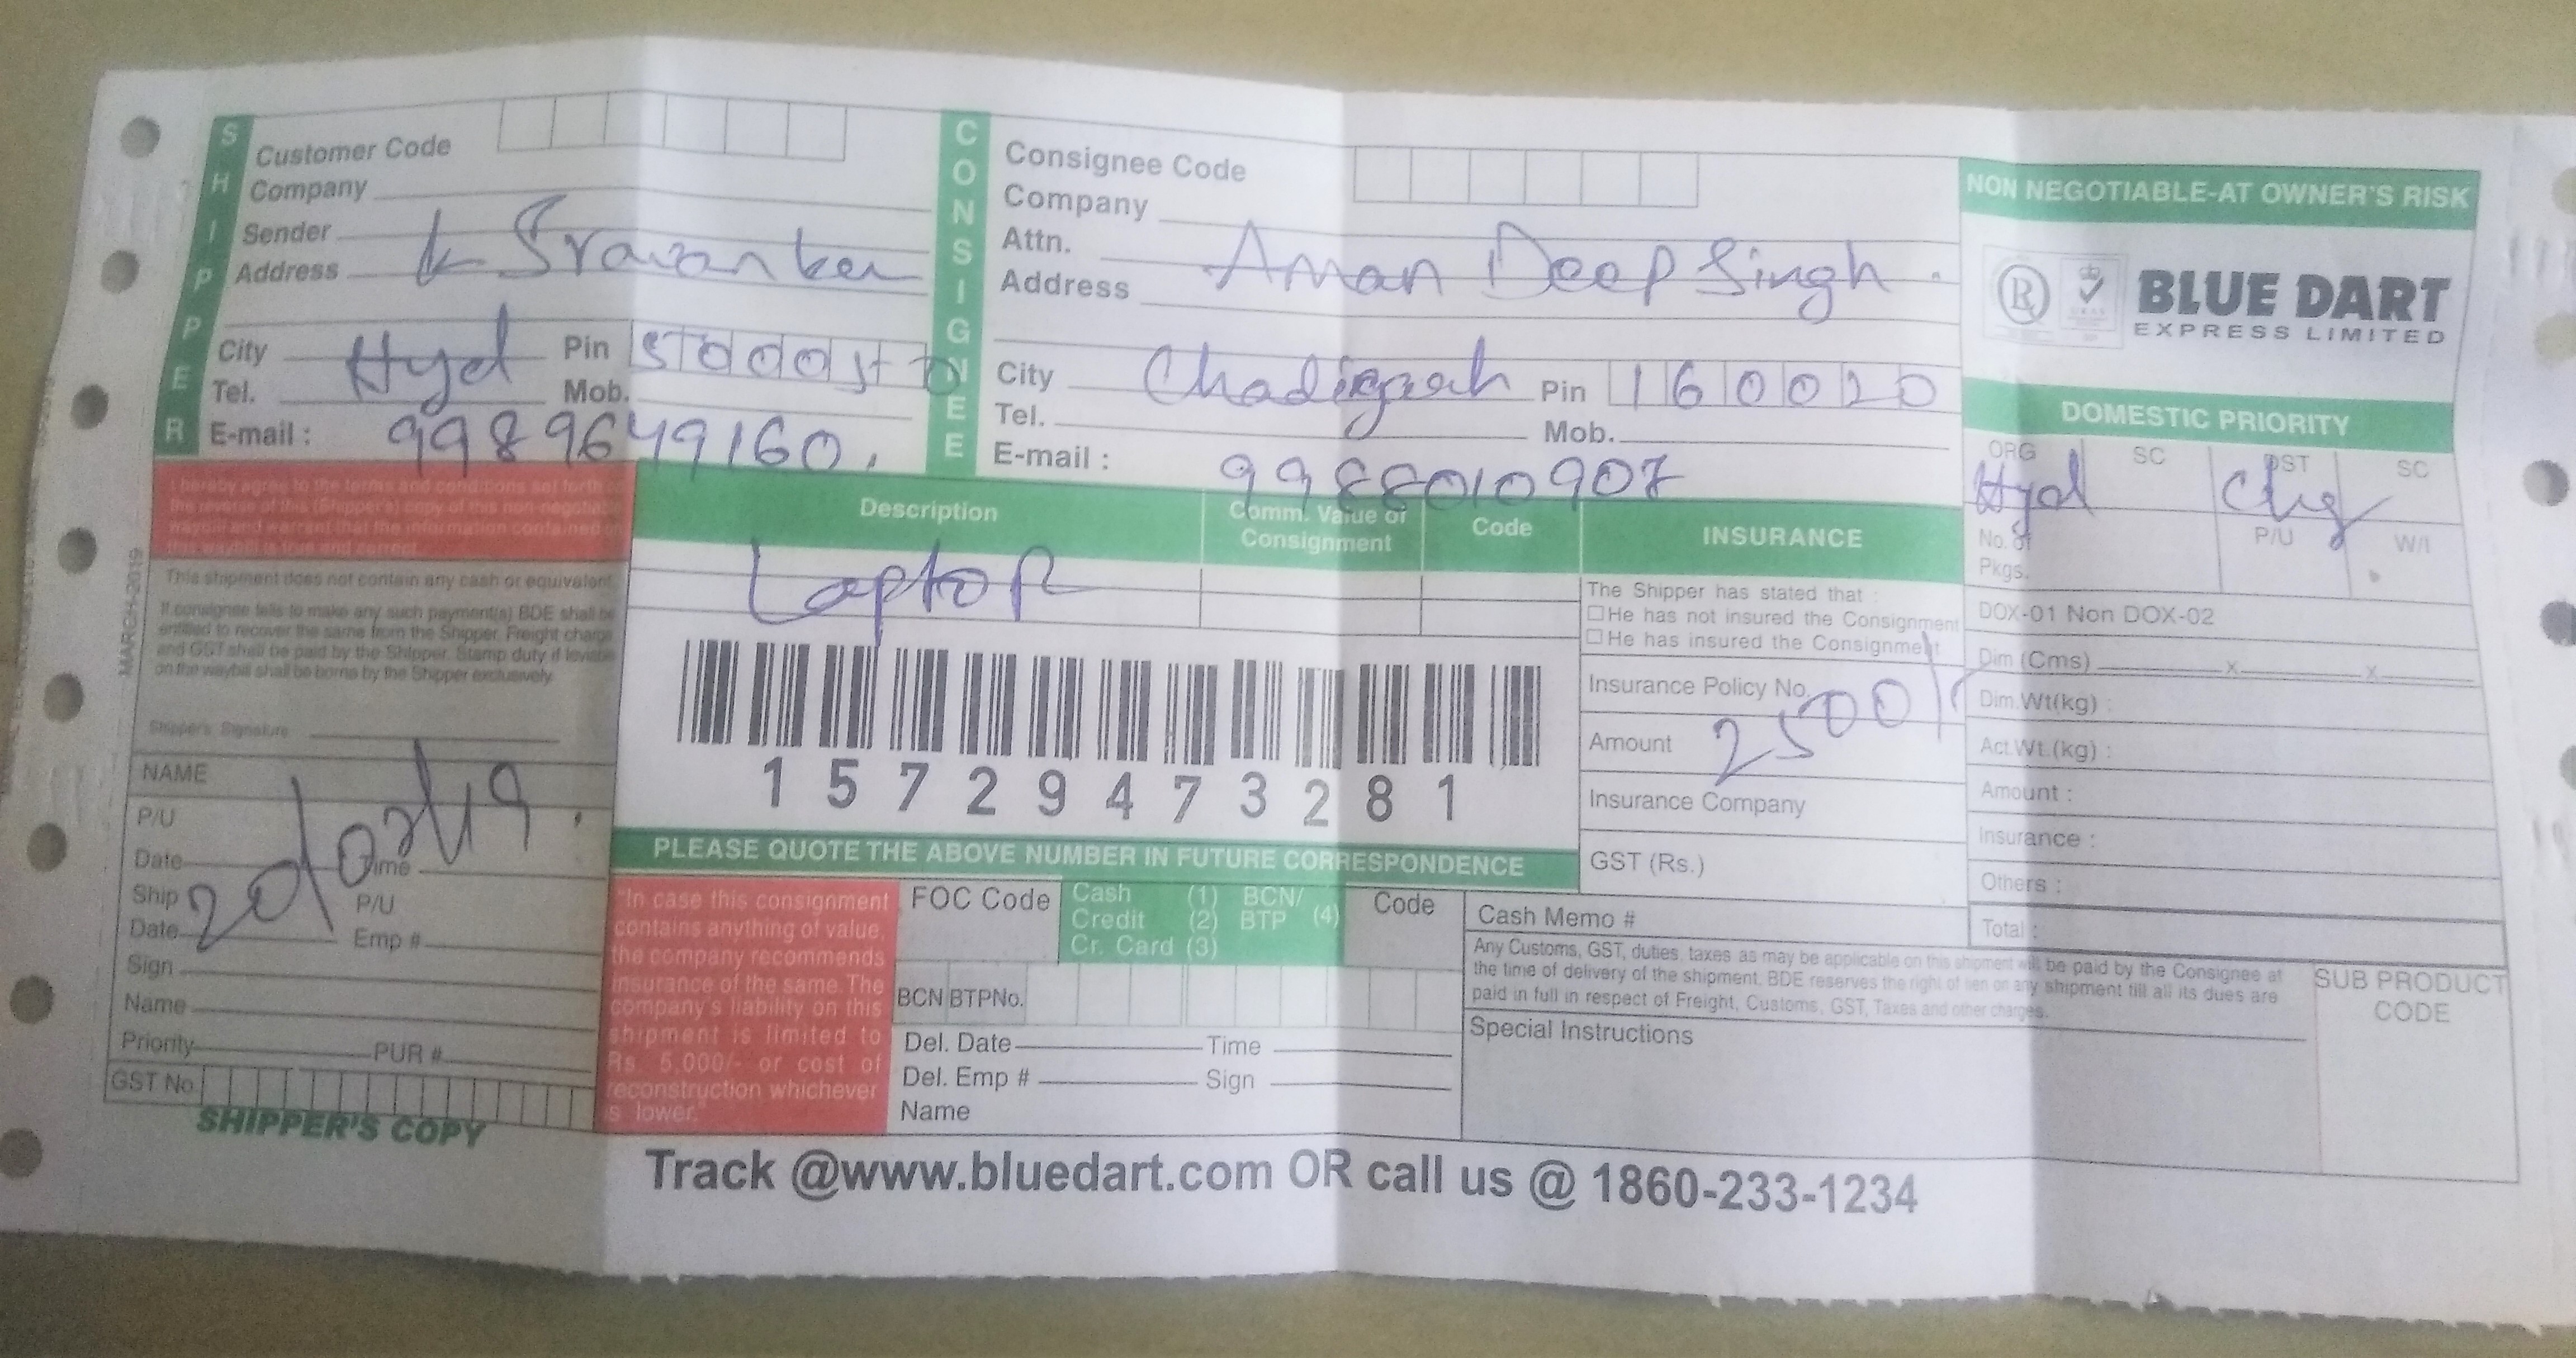 SHIPPER
Customer Code
Company
Sender
Address K Sravanker
City Hyd Pin 500050
Tel. Mob.
E-mail : 9989649160.
CONSIGNEE
Consignee Code
Company
Attn. Aman Deep Singh.
Address
City Chadigarh Pin 160020
Tel. Mob.
E-mail : 9988010907
NON NEGOTIABLE-AT OWNER'S RISK
BLUE DART
EXPRESS LIMITED
DOMESTIC PRIORITY
ORG SC DST SC
Hyd Chg
No. of Pkgs. P/U W/I
DOX-01 Non DOX-02
Dim (Cms) x x
Dim.Wt(kg) :
Act.Wt.(kg) :
Amount :
Insurance :
Others :
Total :
I hereby agree to the terms and conditions set forth on
the reverse of this (Shipper's) copy of this non-negotiable
waybill and warrant that the information contained on
this waybill is true and correct.
This shipment does not contain any cash or equivalent.
If consignee fails to make any such payment(s) BDE shall be
entitled to recover the same from the Shipper. Freight charge
and GST shall be paid by the Shipper. Stamp duty if leviable
on the waybill shall be borne by the Shipper exclusively.
Shipper's Signature
MARCH-2019
NAME
P/U
Date Time
Ship P/U
Date Emp #
20/07/19.
Sign
Name
Priority PUR #
GST No.
SHIPPER'S COPY
Description Comm. Value of Consignment Code INSURANCE
Laptop
The Shipper has stated that :
He has not insured the Consignment
He has insured the Consignment
Insurance Policy No.
Amount 2500/-
Insurance Company
GST (Rs.)
15729473281
PLEASE QUOTE THE ABOVE NUMBER IN FUTURE CORRESPONDENCE
"In case this consignment
contains anything of value,
the company recommends
insurance of the same. The
company's liability on this
shipment is limited to
Rs. 5,000/- or cost of
reconstruction whichever
is lower."
FOC Code Cash (1) BCN/ Code
Credit (2) BTP (4)
Cr. Card (3)
BCN BTPNo.
Del. Date Time
Del. Emp # Sign
Name
Cash Memo #
Any Customs, GST, duties, taxes as may be applicable on this shipment will be paid by the Consignee at
the time of delivery of the shipment. BDE reserves the right of lien on any shipment till all its dues are
paid in full in respect of Freight, Customs, GST, Taxes and other charges.
Special Instructions
SUB PRODUCT
CODE
Track @www.bluedart.com OR call us @ 1860-233-1234